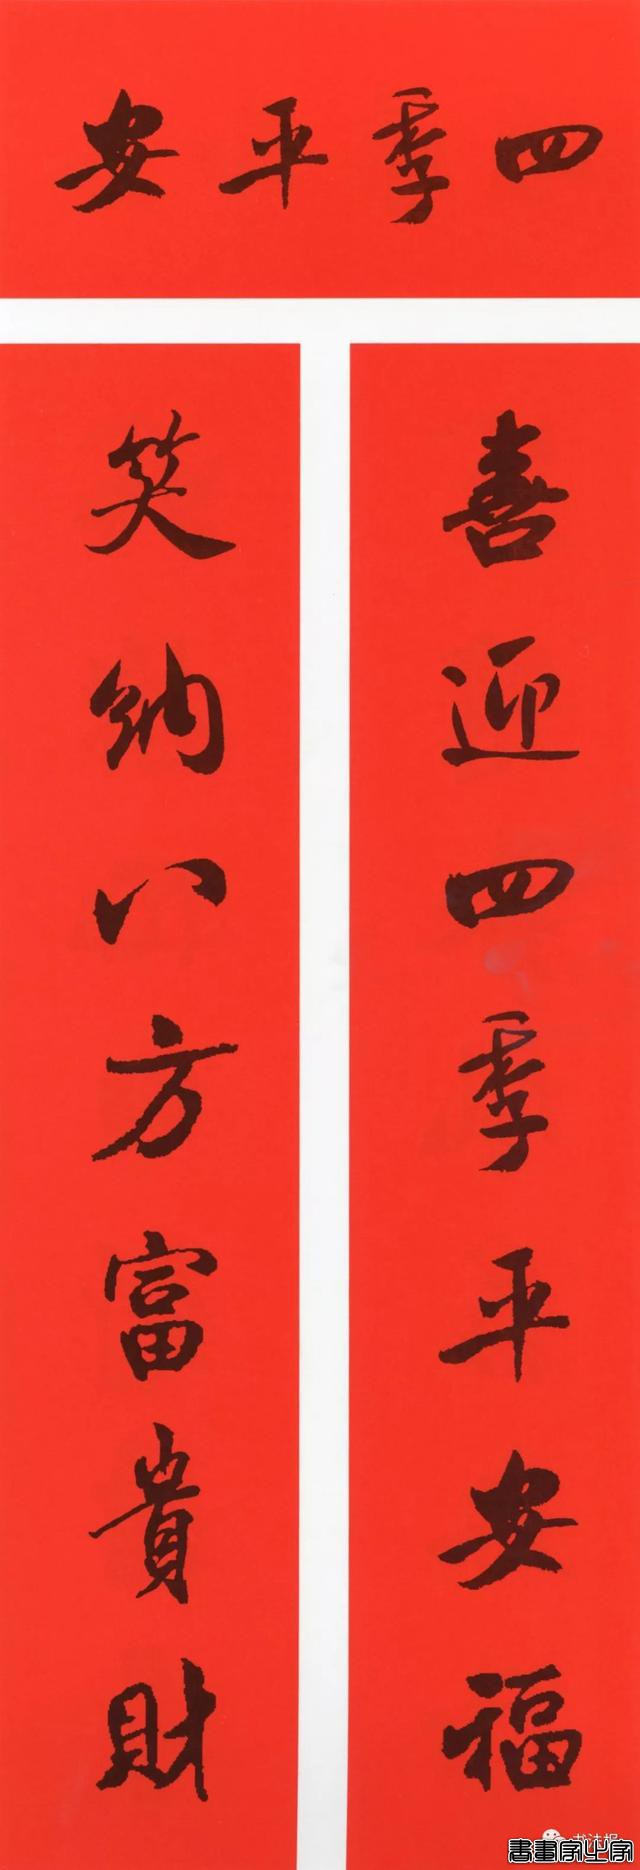 四季平安
喜迎四季平安福
笑納八方富貴財
書畫家之家